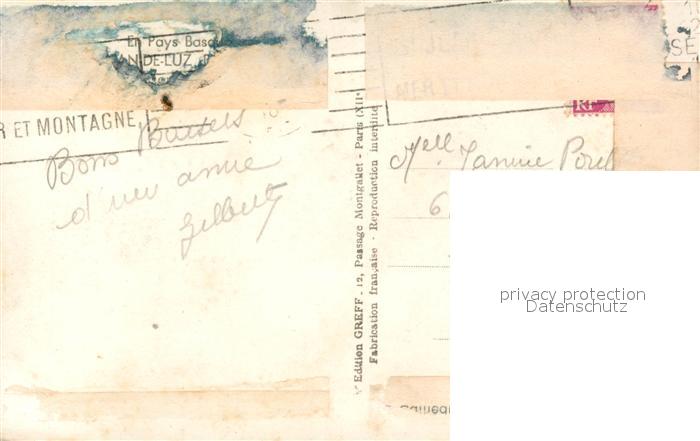 En Pays Basq
N-DE-LUZ
SE
R ET MONTAGNE
RF
Bons Baisers
d'une amie
Gilberte
Edition GREFF - 12, Passage Montgallet - Paris (XIIe
Fabrication française - Reproduction interdite
Melle Janine
6
privacy protection
Datenschutz